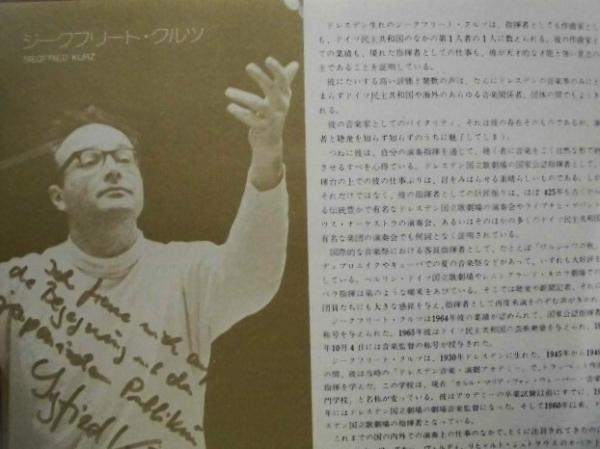 ジークフリート・クルツ
SIEGFRIED KURZ
Ich freue mich auf
die Begegnung mit dem
japanischen Publikum
Siegfried
ドレスデン生れのジークフリート・クルツは、指揮者としても作曲家とし
も、ドイツ民主共和国のなかの第1人者の1人に数えられる。彼の作曲家と
ての業績も、優れた指揮者としての仕事も、彼が天才的な才能と強い意志の
主であることを証明している。
彼にたいする高い評価と驚歎の声は、たんにドレスデンの音楽界のみにと
まらずドイツ民主共和国や海外のあらゆる音楽関係者、団体の間でもよくき
れる。
彼の音楽家としてのバイタリティ、それは彼の存在そのものであるが、
者と聴衆を知らず知らずのうちに魅了してしまう。
つねに彼は、自分の演奏を通して、聴く者に音楽をごく自然な形で
させるすべを心得ている。ドレスデン国立歌劇場の国家公認指揮者として、
揮台の上での彼の仕事ぶりは、目をみはらせる素晴らしいものである。しか
それだけではなく、彼の指揮者としての巨匠振りは、ほぼ425年も古くから
る伝統豊かで有名なドレスデン国立歌劇場の演奏会やライプチヒ・ゲバント
ウス・オーケストラの演奏会、あるいはそのほかの多くのドイツ民主共和国
有名な楽団の演奏会でも何回となく証明されている。
国際的な音楽祭における客員指揮者として、たとえば「ワルシャワの秋」
デュブロニイクやキューバでの夏の音楽祭などがあって、いずれも大好評を
している。ベルリン・ドイツ国立歌劇場やレニングラード・キロフ劇場での
ペラ指揮は嵐のような喝采をあびている。そこでは聴衆や新聞記者、それに
団員たちにも大きな感銘を与え、指揮者として再度来演をのぞむ声がきかれ
ジークフリート・クルツは1964年彼の業績が認められて、国家公認指揮者
称号を与えられた。1965年彼はドイツ民主共和国の芸術勲章を与えられ、19
年10月4日には音楽監督の称号が授与された。
ジークフリート・クルツは、1930年ドレスデンに生れた。1945年から194
の間、彼は当時の「ドレスデン音楽・演劇アカデミー」で、トランペットと作
指揮を学んだ。この学校は、現在「カルル・マリア・フォン・ウェーバー・音楽
門学校」と名称が変っている。彼はアカデミーの卒業試験以前にすでに、19
年にはドレスデン国立劇場の劇場音楽監督になった。そして1960年以来、
スデン国立歌劇場の指揮者となっている。
これまでの国の内外での演奏上の仕事のなかで、とくに注目されてきたのは